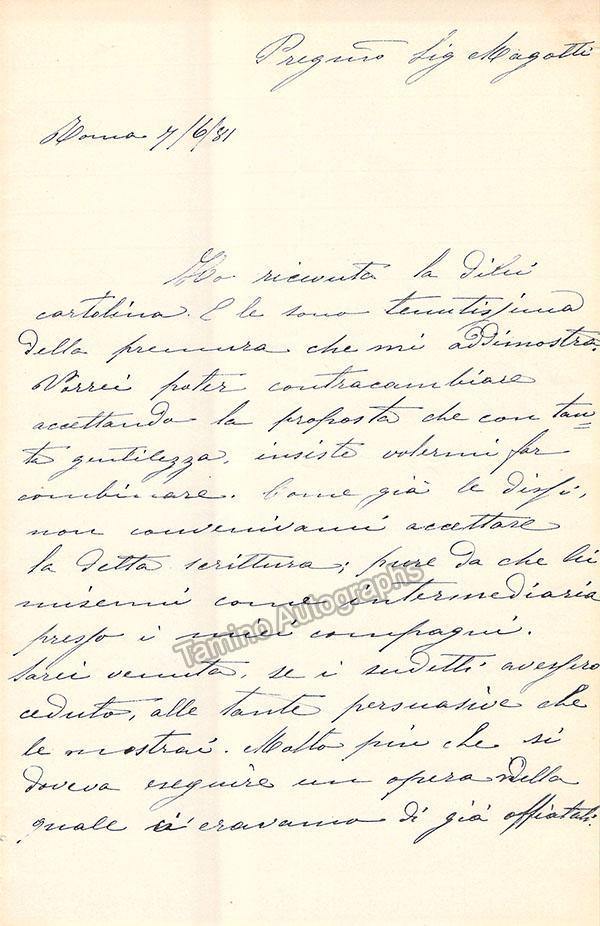 Pregmo Sig Magotti
Roma 7/6/81
Ho ricevuta la dilei
cartolina. E le sono tenutissima
della premura che mi addimostra.
Vorrei poter contracambiare
accettando la proposta che con tan=
ta gentilezza, insiste volermi far
combinare. Come già le dissi,
non convenivami accettare
la detta scrittura; pure da che lei
misemi come intermediaria
presso i miei compagni.
Sarei venuta, se i sudetti avessero
ceduto, alle tante persuasive che
le mostrai. Molto più che si
doveva eseguire un opera nella
quale ci eravamo di già affiatati.
Tamino Autographs